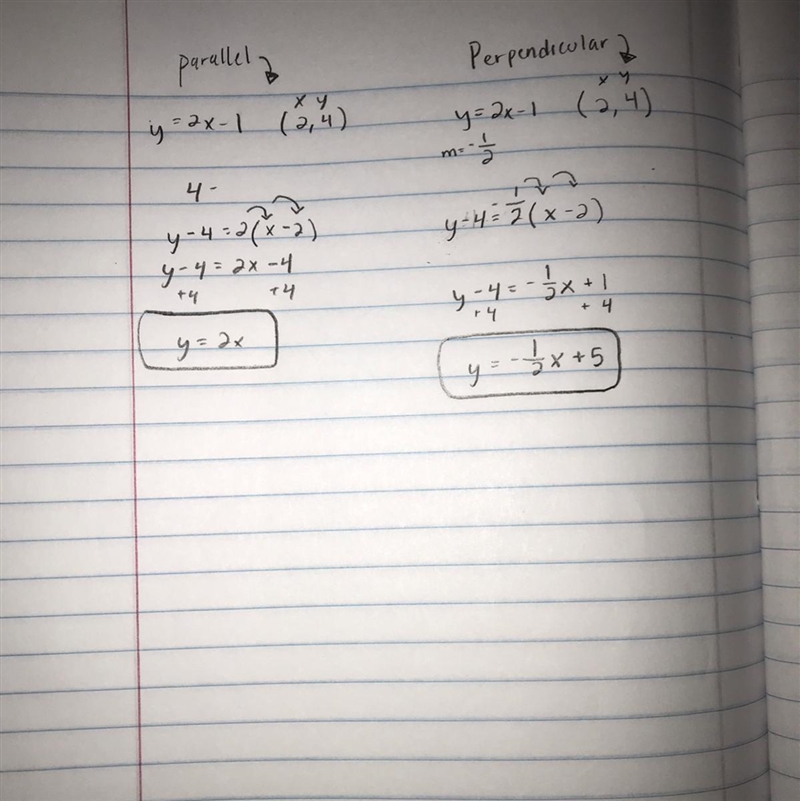 Parallel
x y
y = 2x - 1 (2, 4)
4 -
y - 4 = 2(x - 2)
y - 4 = 2x - 4
+4 +4
y = 2x
Perpendicular
x y
y = 2x - 1 (2, 4)
m = -1/2
y - 4 = -1/2(x - 2)
y - 4 = -1/2x + 1
+4 +4
y = -1/2x + 5